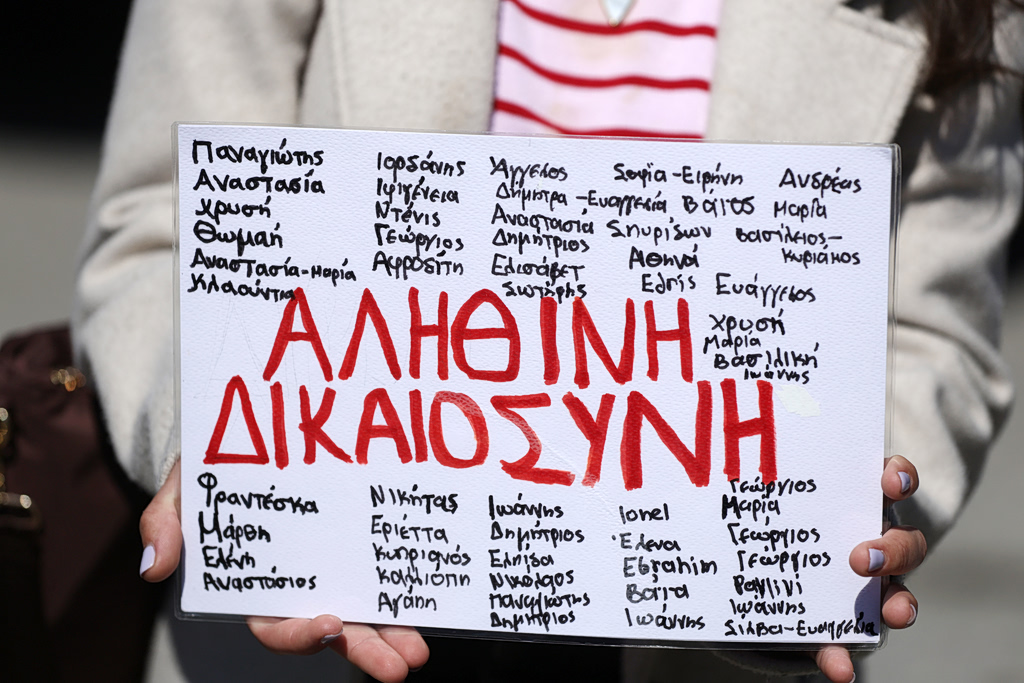 Παναγιώτης
Αναστασία
Χρυσή
Θωμαή
Αναστασία-Μαρία
Κλαούντια
Ιορδάνης
Ιφιγένεια
Ντένις
Γεώργιος
Αφροδίτη
Άγγελος
Δήμητρα-Ευαγγελία
Αναστασία
Δημήτριος
Ελισάβετ
Σωτήρης
Σοφία-Ειρήνη
Βάιος
Σπυρίδων
Αθηνά
Ελπίς
Ανδρέας
Μαρία
Βασίλειος-
Κυριάκος
Ευάγγελος
Χρυσή
Μαρία
Βασιλική
Ιωάννης
ΑΛΗΘΙΝΗ
ΔΙΚΑΙΟΣΥΝΗ
Φραντέσκα
Μάρθη
Ελένη
Αναστάσιος
Νικήτας
Εριέττα
Κυπριανός
Καλλιόπη
Αγάπη
Ιωάννης
Δημήτριος
Ελπίδα
Νικόλαος
Παναγιώτης
Δημήτριος
Ionel
Έλενα
Ebrahim
Βάια
Ιωάννης
Γεώργιος
Μαρία
Γεώργιος
Γεώργιος
Ιωάννης